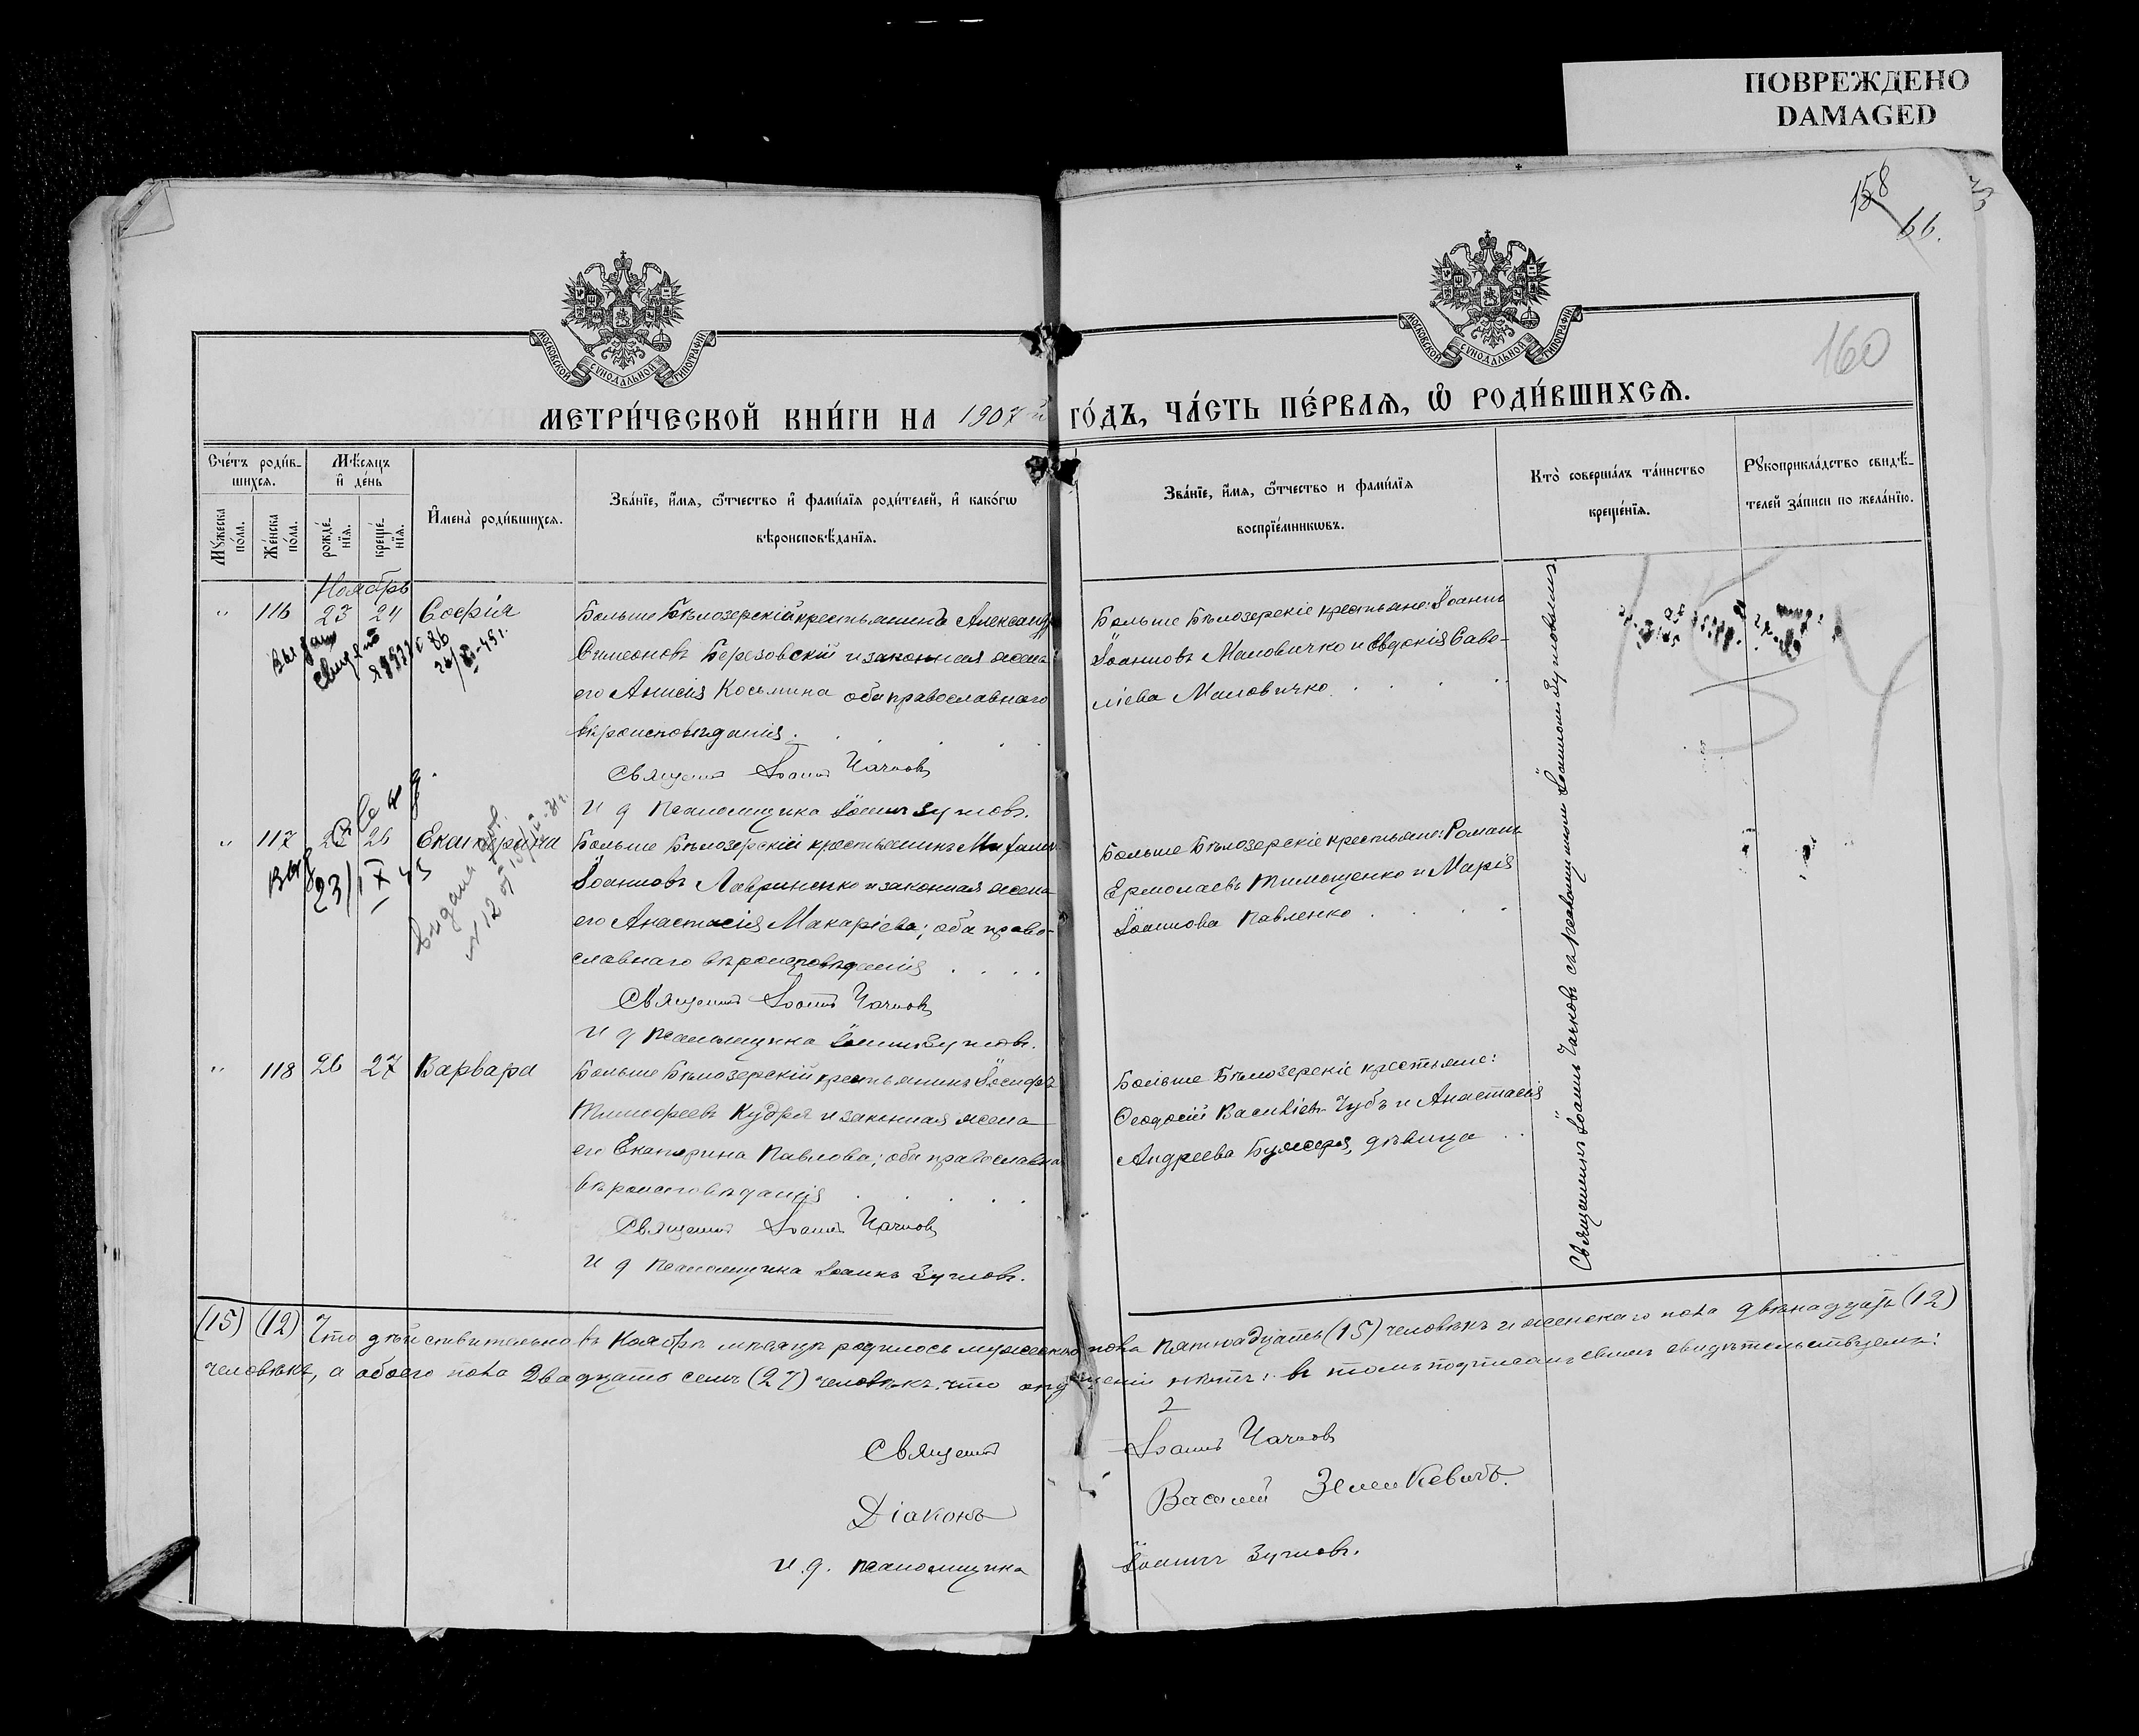 ПОВРЕЖДЕНО
DAMAGED
158
66.
160
МОСКОВСКОЙ СѴНОДАЛЬНОЙ ТИПОГРАФІИ
МОСКОВСКОЙ СѴНОДАЛЬНОЙ ТИПОГРАФІИ
МЕТРИ́ЧЕСКОЙ КНИ́ГИ НА 1907 й ГО́ДЪ, ЧА́СТЬ ПЕ́РВАѦ, Ѡ҆ РОДИ́ВШИХСѦ.
Сче́тъ роди́в-
шихсѧ.
Мꙋ́жеска по́ла.
Же́нска по́ла.
Мѣ́сѧцъ и҆ де́нь
рожде́-
нїѧ.
креще́-
нїѧ.
И҆мена̀ роди́вшихсѧ.
Зва́нїе, и҆́мѧ, ѻ҆́тчество и҆ фами́лїѧ роди́телей, и҆ како́гѡ
вѣроисповѣ́данїѧ.
Зва́нїе, и҆́мѧ, ѻ҆́тчество и фами́лїѧ
воспрїе́мникѡвъ.
Кто̀ соверша́лъ та́инство
креще́нїѧ.
Рꙋкоприкла́дство свидѣ́-
телей за́писи по жела́нїю.
Ноябрь
" 116 23 24 Софія
Больше Бѣлозерскій крестьянинъ Александръ
Симеоновъ Березовскій и законная жена
его Анисія Косьмина оба православнаго
вѣроисповѣданія.
Священ Іоаннъ Чачковъ
И д псаломщика Іоаннъ Зутковъ.
Больше Бѣлозерскіе крестьяне: Іоаннъ
Іоанновъ Маловичко и Евдокія Саве-
ліева Маловичко.
" 117 25 26 Екатерина
Больше Бѣлозерскій крестьянинъ
Іоанновъ Лавриненко и законная жена
его Анастасія Макаріева; оба право-
славнаго вѣроисповѣданія
Священ Іоаннъ Чачковъ
И д псаломщика Іоаннъ Зутковъ.
Больше Бѣлозерскіе крестьяне: Романъ
Ермолаевъ Тимощенко и Марія
Іоаннова Павленко
23/IX 45
" 118 26 27 Варвара
Больше Бѣлозерскій крестьянинъ Іосифъ
Тимофеевъ Кудря и законная жена
его Екатерина Павлова; оба православна
вѣроисповѣданія
Священ Іоаннъ Чачковъ
И д псаломщика Іоаннъ Зутковъ.
Больше Бѣлозерскіе крестьяне:
Ѳеодосій Василіевъ Чубъ и Анастасія
Андреева дѣвица
Священникъ Іоаннъ Чачковъ съ псаломщикомъ Іоанномъ Зутковымъ.
(15) (12) Что дѣйствительно въ Ноябрѣ мѣсяцѣ родилось мужескаго пола пятнадцать (15) человѣкъ и женскаго пола двѣнадцать (12)
человѣкъ, а обоего пола двадцать семь (27) человѣкъ, что опущеній нѣтъ: въ томъ подписомъ своимъ свидѣтельствуемъ:
Священ Іоаннъ Чачковъ
Діаконъ Василій Зенкевичъ.
И. д. псаломщика Іоаннъ Зутковъ.